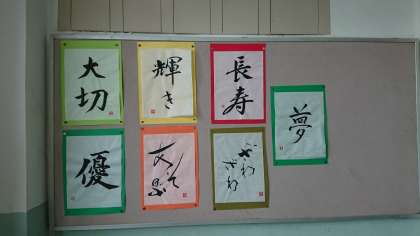 大切
輝き
長寿
夢
優
ざわ
ざわ